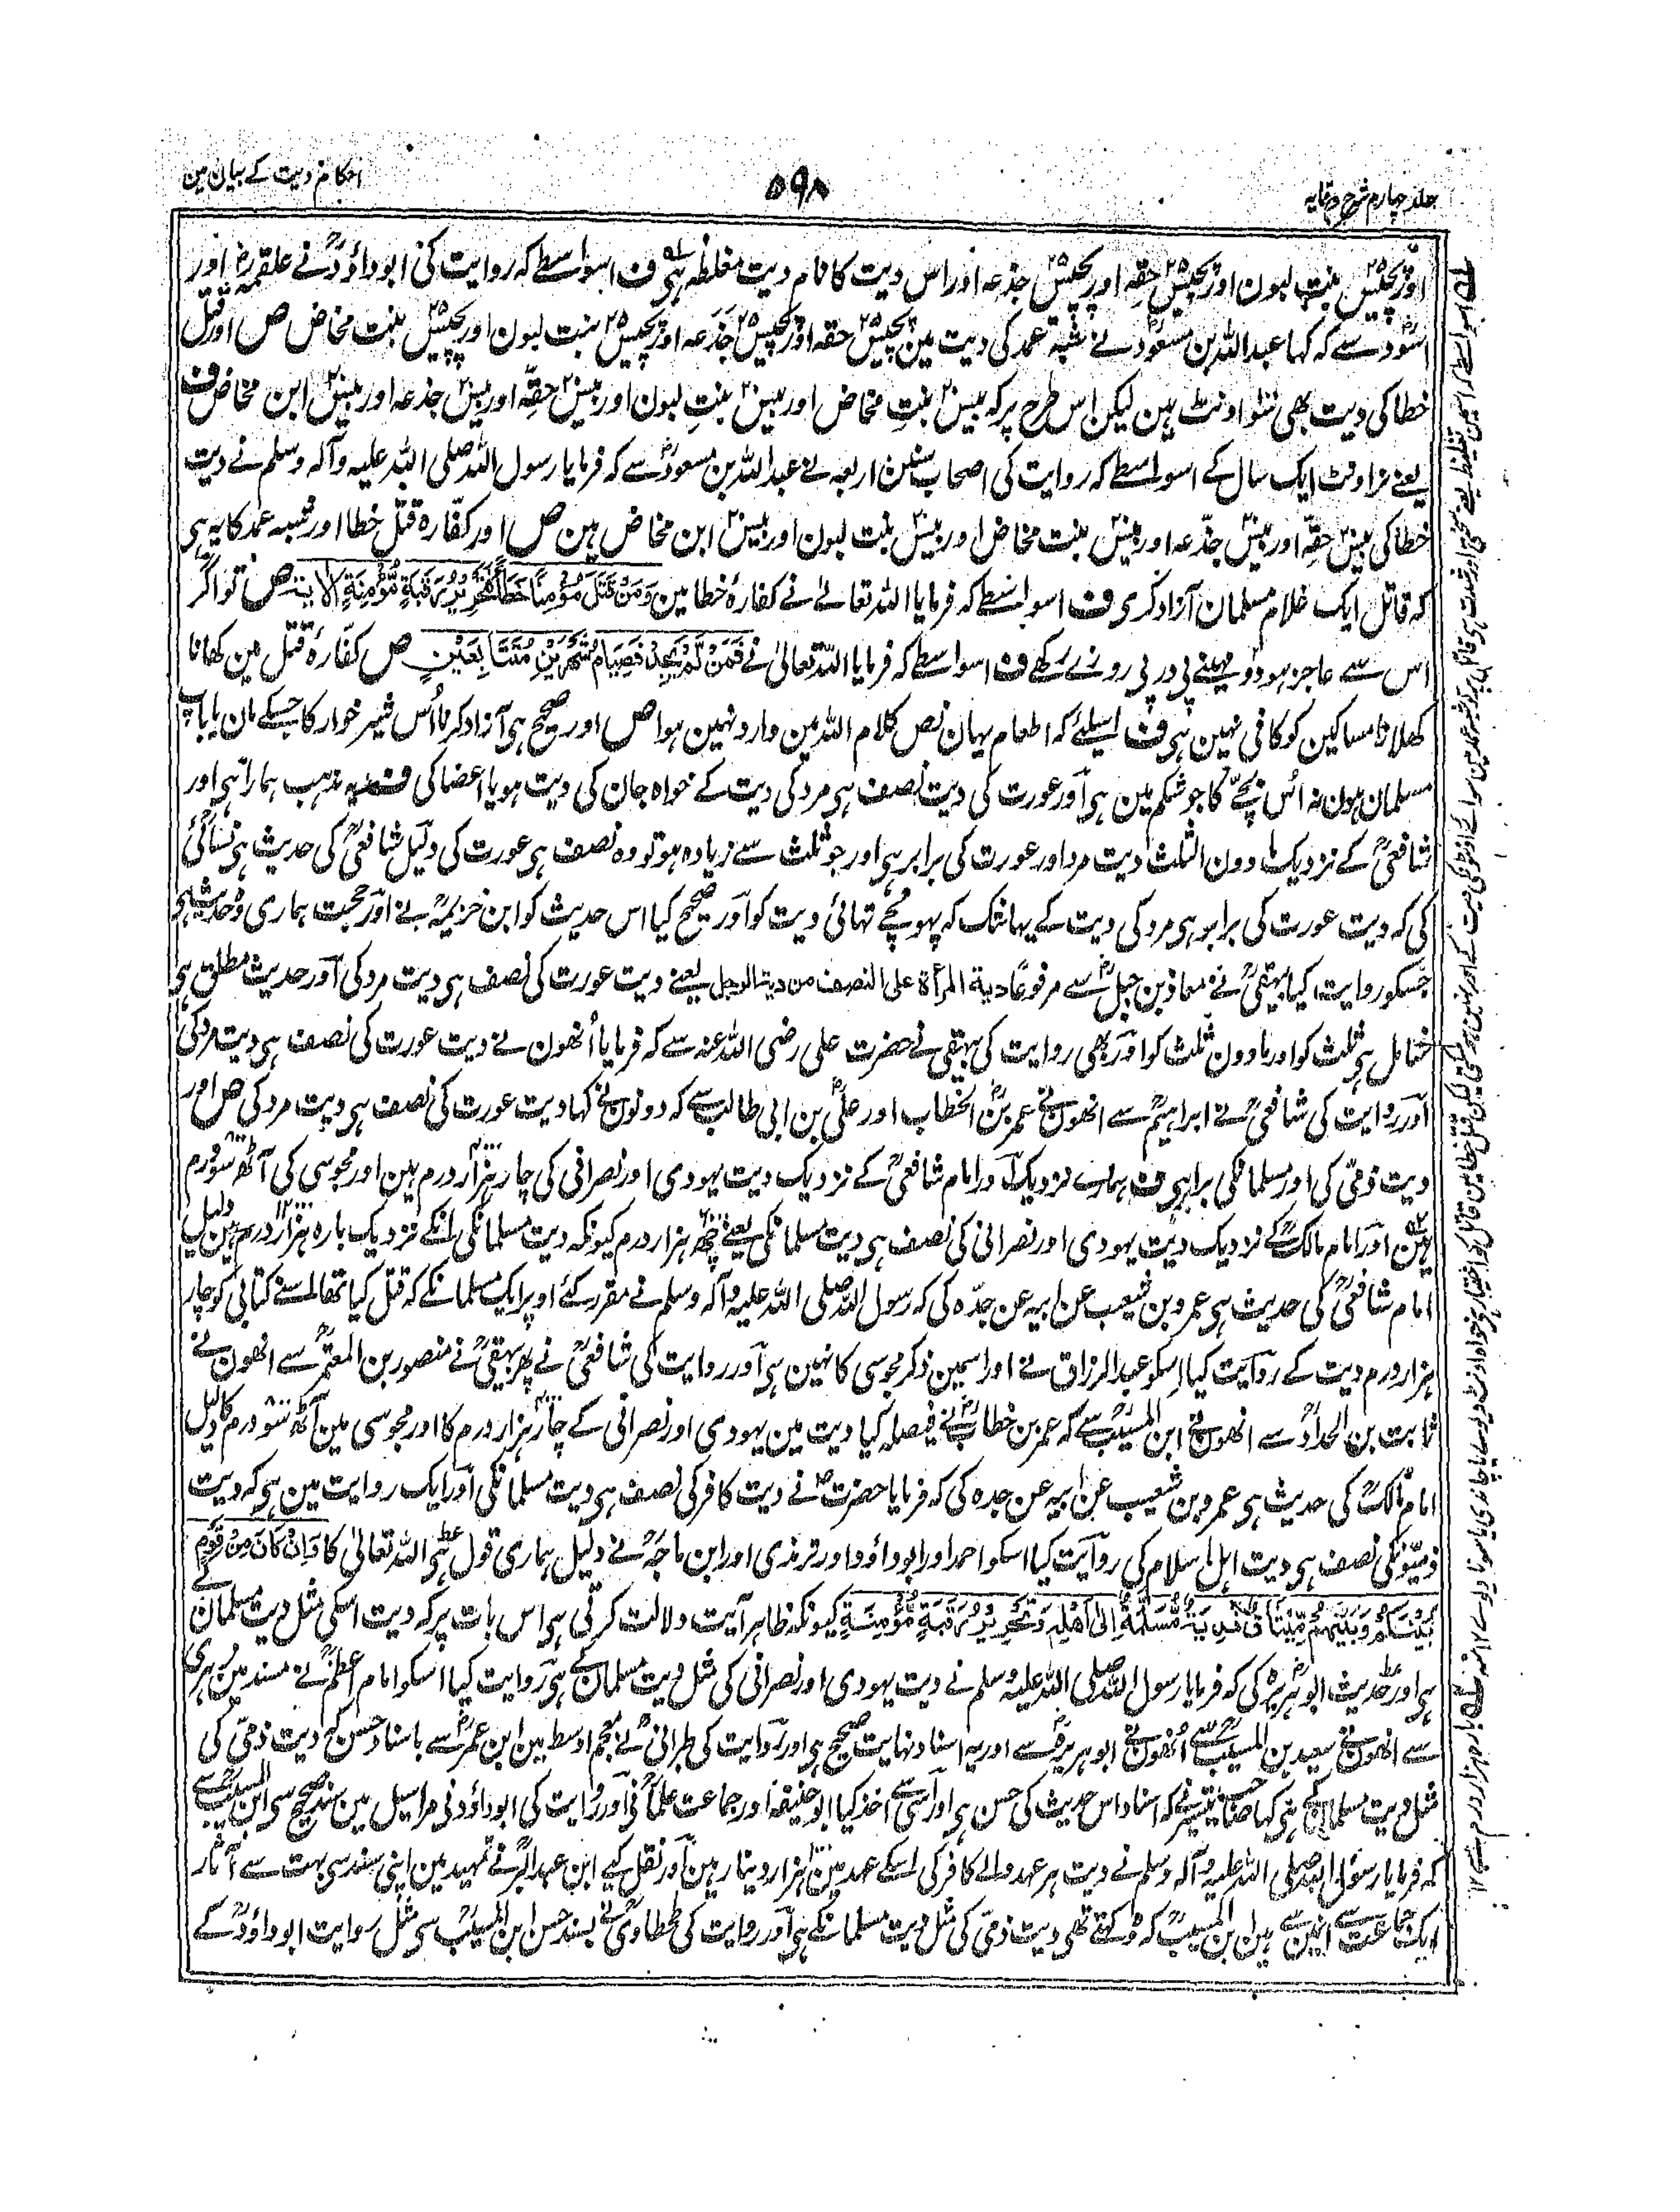 جلد چہارم شرح وقایہ
۵۹۸
احکام دیت کے بیان مین
اور پچیس بنت لبون اور پچیس حقہ اور پچیس جذعہ اور اس دیت کا نام دیت مغلظہ ہی ف اسواسطے کہ روایت کی ابو داؤدؒ نے علقمہؒ اور
اسودؒ سے کہ کہا عبد اللہ بن مسعودؓ نے شبہ عمد کی دیت مین پچیس حقہ اور پچیس جذعہ اور پچیس بنت لبون اور پچیس بنت مخاض ص اور قتل
خطا کی دیت بھی سو اونٹ ہین لیکن اس طرح پر کہ بیس بنت مخاض اور بیس بنت لبون اور بیس حقہ اور بیس جذعہ اور بیس ابن مخاض ف
یعنے نر اونٹ ایک سال کے اسواسطے کہ روایت کی اصحاب سنن اربعہ نے عبد اللہ بن مسعودؓ سے کہ فرمایا رسول اللہ صلی اللہ علیہ وآلہ وسلم نے دیت
خطا کی بیس حقہ اور بیس جذعہ اور بیس بنت مخاض اور بیس بنت لبون اور بیس ابن مخاض ہین ص اور کفارہ قتل خطا اور شبہ عمد کا یہ ہی
کہ قاتل ایک غلام مسلمان آزاد کری ف اسواسطے کہ فرمایا اللہ تعالےٰ نے کفارۂ خطا مین وَمَنْ قَتَلَ مُؤْمِنًا خَطَأً فَتَحْرِیْرُ رَقَبَةٍ مُّؤْمِنَةٍ الآیۃ ص تو اگر
اس سے عاجز ہو دو مہینے پی در پی روزے رکھے ف اسواسطے کہ فرمایا اللہ تعالیٰ نے فَمَنْ لَّمْ یَجِدْ فَصِیَامُ شَهْرَیْنِ مُتَتَابِعَیْنِ ص کفارۂ قتل مین کھانا
کھلانا مساکین کو کافی نہین ہی ف اسلیئے کہ اطعام یہان نص کلام اللہ مین وارد نہین ہوا ص اور صحیح ہی آزاد کرنا اُس شیر خوار کا جسکے مان یا باپ
مسلمان ہون نہ اُس بچے کا جو شکم مین ہی اور عورت کی دیت نصف ہی مرد کی دیت کے خواہ جان کی دیت ہو یا اعضا کی ف یہ مذہب ہمارا ہی اور
شافعیؒ کے نزدیک مادون الثلث دیت مرد اور عورت کی برابر ہی اور جو ثلث سے زیادہ ہو تو وہ نصف ہی عورت کی دلیل شافعیؒ کی حدیث ہی نسائی
کی کہ دیت عورت کی برابر ہی مرد کی دیت کے یہانتک کہ پہونچے تہائی دیت کو اور صحیح کیا اس حدیث کو ابن خزیمہؒ نے اور حجت ہماری وہ حدیث ہی
جسکو روایت کیا بیہقیؒ نے معاذ بن جبلؓ سے مرفوعًا دية المرأة على النصف من دية الرجل یعنے دیت عورت کی نصف ہی دیت مرد کی اور حدیث مطلق ہی
شامل ہی ثلث کو اور مادون ثلث کو اور بھی روایت کی بیہقی نے حضرت علی رضی اللہ عنہ سے کہ فرمایا اُنھون نے دیت عورت کی نصف ہی دیت مرد کی
اور روایت کی شافعیؒ نے ابراہیمؒ سے انھون نے عمر بن الخطاب اور علیؓ بن ابی طالب سے کہ دونون نے کہا دیت عورت کی نصف ہی دیت مرد کی ص اور
دیت ذمی کی اور مسلمانکی برابر ہی ف ہمارے نزدیک اور امام شافعیؒ کے نزدیک دیت یہودی اور نصرانی کی چار ہزار درم ہین اور مجوسی کی آٹھ سو درم
ہین اور امام مالکؒ کے نزدیک دیت یہودی اور نصرانی کی نصف ہی دیت مسلمانکی یعنے چھ ہزار درم کیونکہ دیت مسلمانکی انکے نزدیک بارہ ہزار درم ہین دلیل
امام شافعیؒ کی حدیث ہی عمرو بن شعیب عن ابیہ عن جدہ کی کہ رسول اللہ صلی اللہ علیہ وآلہ وسلم نے مقرر کئے اوپر ایک مسلمانکے کہ قتل کیا تھا اسنے کتابی کو چار
ہزار درم دیت کے روایت کیا اسکو عبد الرزاق نے اور اسمین ذکر مجوسی کا نہین ہی اور روایت کی شافعیؒ نے پھر بیہقیؒ نے منصور بن المعتمرؒ سے انھون نے
ثابت بن الحدادؒ سے انھون نے ابن المسیبؒ سے کہ عمر بن خطابؓ نے فیصلہ کیا دیت مین یہودی اور نصرانی کے چار ہزار درم کا اور مجوسی مین آٹھ سو درم کا دلیل
امام مالکؒ کی حدیث ہی عمرو بن شعیب عن ابیہ عن جدہ کی کہ فرمایا حضرتؐ نے دیت کافر کی نصف ہی دیت مسلمانکی اور ایک روایت مین ہی کہ دیت
ذمیونکی نصف ہی دیت اہل اسلام کی روایت کیا اسکو احمد اور ابو داؤد اور ترمذی اور ابن ماجہؒ نے دلیل ہماری قول ہی اللہ تعالیٰ کا وَاِنْ كَانَ مِنْ قَوْمٍ
بَيْنَكُمْ وَبَيْنَهُمْ مِّيْثَاقٌ فَدِيَةٌ مُّسَلَّمَةٌ اِلٰى اَهْلِهِ وَتَحْرِيْرُ رَقَبَةٍ مُّؤْمِنَةٍ کیونکہ ظاہر آیت دلالت کرتی ہی اس بات پر کہ دیت اسکی مثل دیت مسلمان کے
ہی اور حدیث ابو ہریرہؓ کی کہ فرمایا رسول اللہ صلی اللہ علیہ وسلم نے دیت یہودی اور نصرانی کی مثل دیت مسلمان کے ہی روایت کیا اسکو امام اعظمؒ نے مسند مین زہری
سے انھون نے سعید بن المسیبؒ سے اُنھون نے ابو ہریرہؓ سے اور یہ اسناد نہایت صحیح ہی اور روایت کی طبرانیؒ نے معجم اوسط مین ابن عمرؓ سے باسناد حسن کہ دیت ذمی کی
مثل دیت مسلمان کے ہی کہا صاحب تیسیر نے کہ اسناد اس حدیث کی حسن ہی اور اسی سے اخذ کیا ابو حنیفہ اور جماعت علما نی اور روایت کی ابو داؤد نی مراسیل مین بسند صحیح سی ابن المسیبؒ سے
کہ فرمایا رسول اللہ صلی اللہ علیہ وآلہ وسلم نے دیت ہر عہد والے کافر کی اسکے عہد مین ہزار دینار ہین اور نقل کیے ابن عبد البرؒ نے تمہید مین اپنی سند سی بہت سے آثار
ایک جماعت سے انہین سے ہین ابن المسیبؒ کہ وہ کہتے تھی دیت ذمی کی مثل دیت مسلمانکے ہی اور روایت کی طحطاویؒ نے بسند حسن ابن المسیبؒ سی مثل روایت ابو داؤدؒ کے